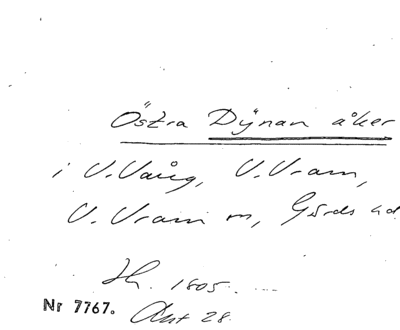 Östra Dÿnan åker
i V.Vång, V.Vram,
V. Vram sn, Gärds hd
Sk. 1805.
Nr 7767. Akt 28.